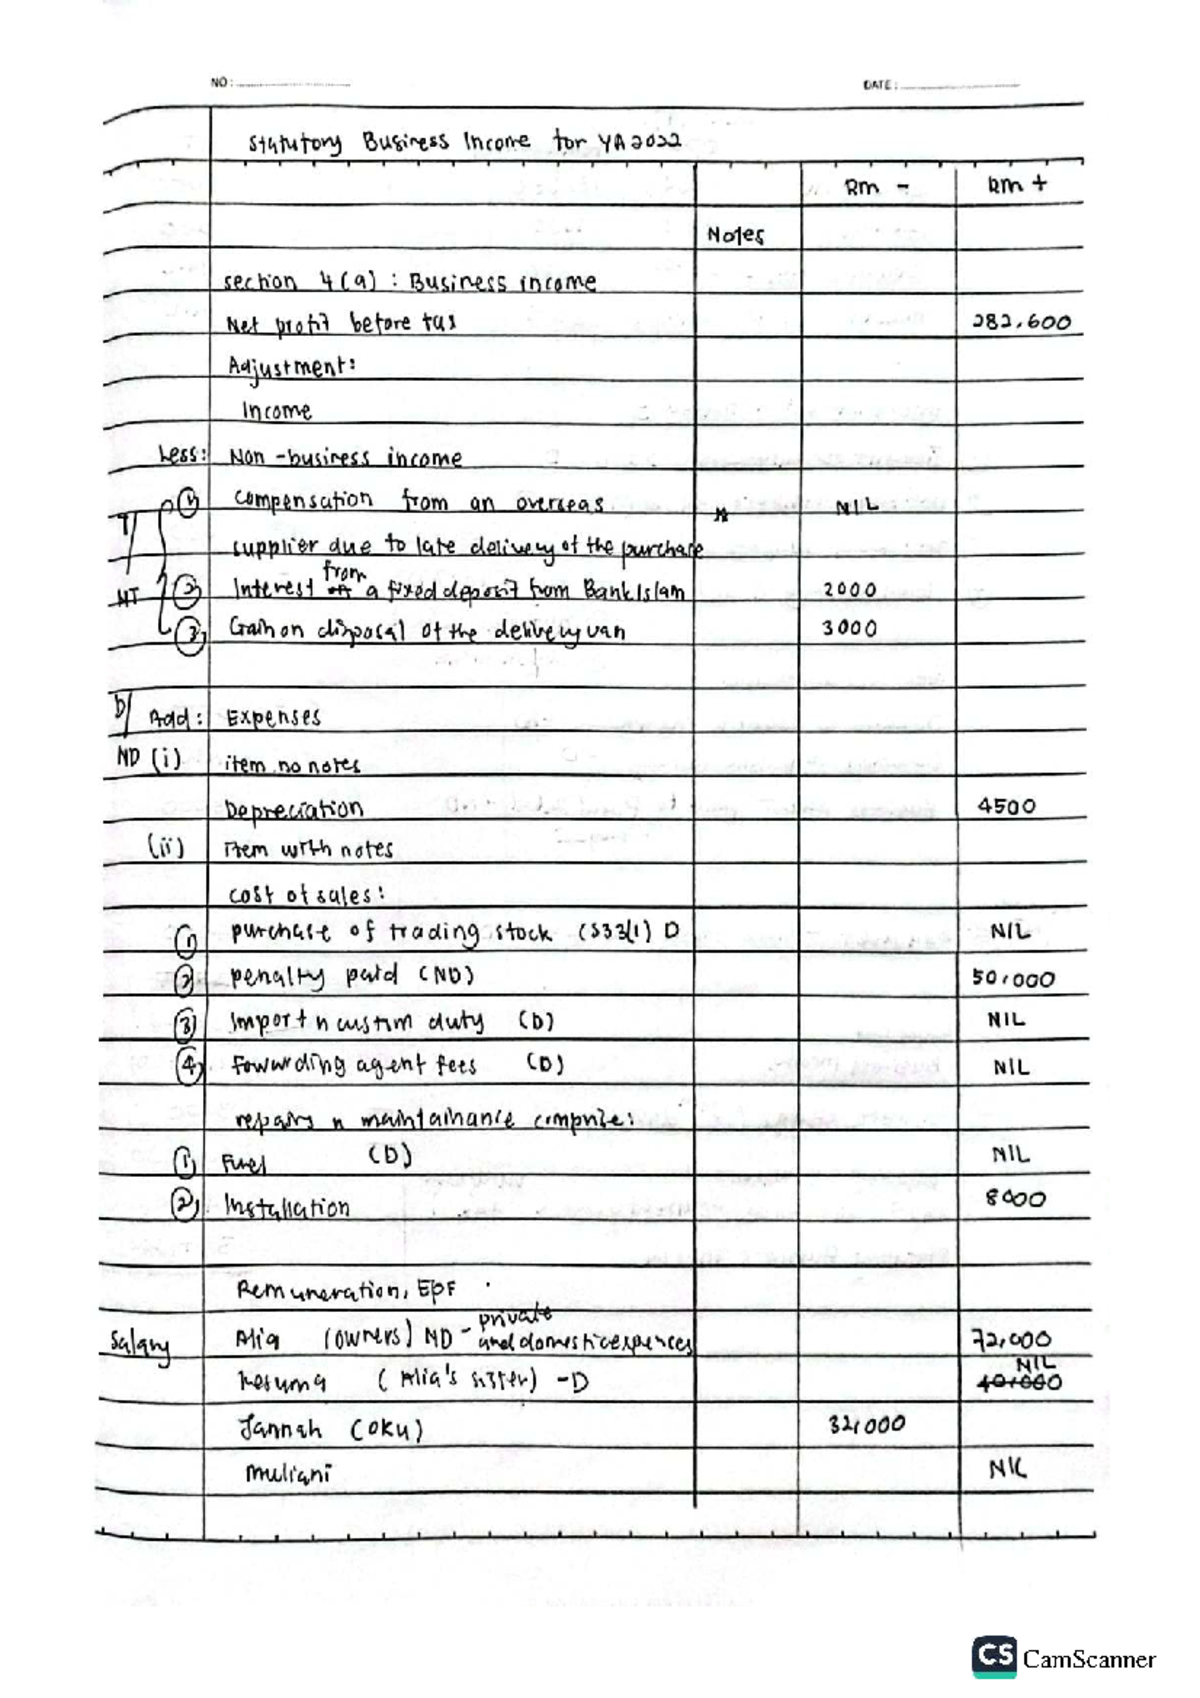 NO: DATE:
Statutory Business Income for YA2022
Rm - Rm +
Notes
section 4(a) : Business income
Net profit before tax 282,600
Adjustment:
Income
Less: Non-business income
① compensation from an overseas NIL
T/ supplier due to late delivery of the purchase
from
NT ② Interest a fixed deposit from Bank Islam 2000
③ Gain on disposal of the delivery van 3000
D/ Add: Expenses
ND (i) item no notes
Depreciation 4500
(ii) Item with notes
cost of sales:
① purchase of trading stock (S33(1) D NIL
② penalty paid (ND) 50,000
③ Import n custom duty (D) NIL
④ Fowarding agent fees (D) NIL
repairs n maintainance comprise:
① Fuel (D) NIL
② Installation 8000
Remuneration, EPF
private
Salary Alia (owners) ND - and domestic expences 72,000
NIL
Kesuma (Alia's sister) -D 40,000
Jannah (OKU) 32,000
Muliani NIL
CS CamScanner